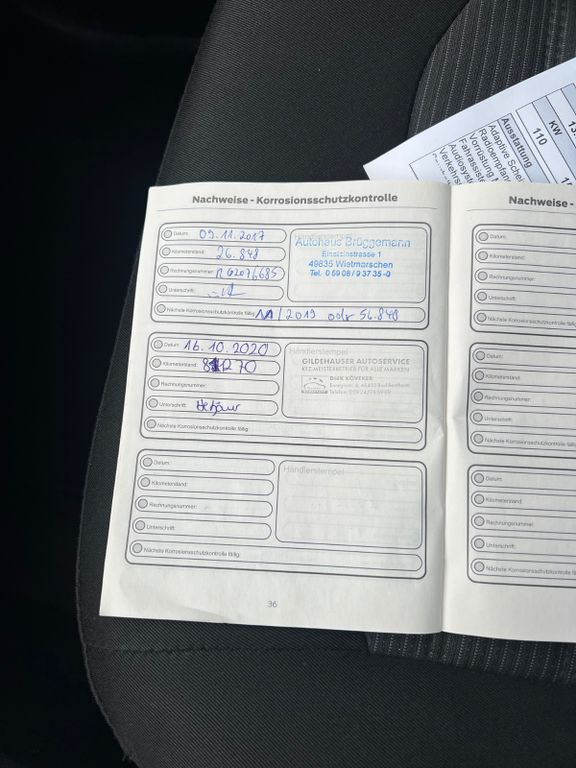 Ausstattung
110
KW
Adaptive Schei
Radioempfan
Vorrüstung
Audiosyste
Fahrassiste
Verkehrs
Nachweise - Korrosionsschutzkontrolle
Datum: 09.11.2017
Kilometerstand: 26.848
Rechnungsnummer:
Unterschrift:
Nächste Korrosionsschutzkontrolle fällig: 11/2019 oder 56.848
Händlerstempel
Autohaus Brüggemann
Einsteinstrasse 1
49835 Wietmarschen
Tel. 0 59 08 / 9 37 35-0
Datum: 16.10.2020
Kilometerstand:
Rechnungsnummer:
Unterschrift:
Nächste Korrosionsschutzkontrolle fällig:
Händlerstempel
GILDEHAUSER AUTOSERVICE
KFZ-MEISTERBETRIEB FÜR ALLE MARKEN
Datum:
Kilometerstand:
Rechnungsnummer:
Unterschrift:
Nächste Korrosionsschutzkontrolle fällig:
Händlerstempel
36
Nachweise -
Datum:
Kilometerstand:
Rechnungsnummer:
Unterschrift:
Nächste Korrosionsschutzkontrolle fä
Datum:
Kilometerstand:
Rechnungsnummer:
Unterschrift:
Nächste Korrosionsschutzkontrolle fäl
Datum:
Kilometerstand:
Rechnungsnummer:
Unterschrift:
Nächste Korrosionsschutzkontrolle fä